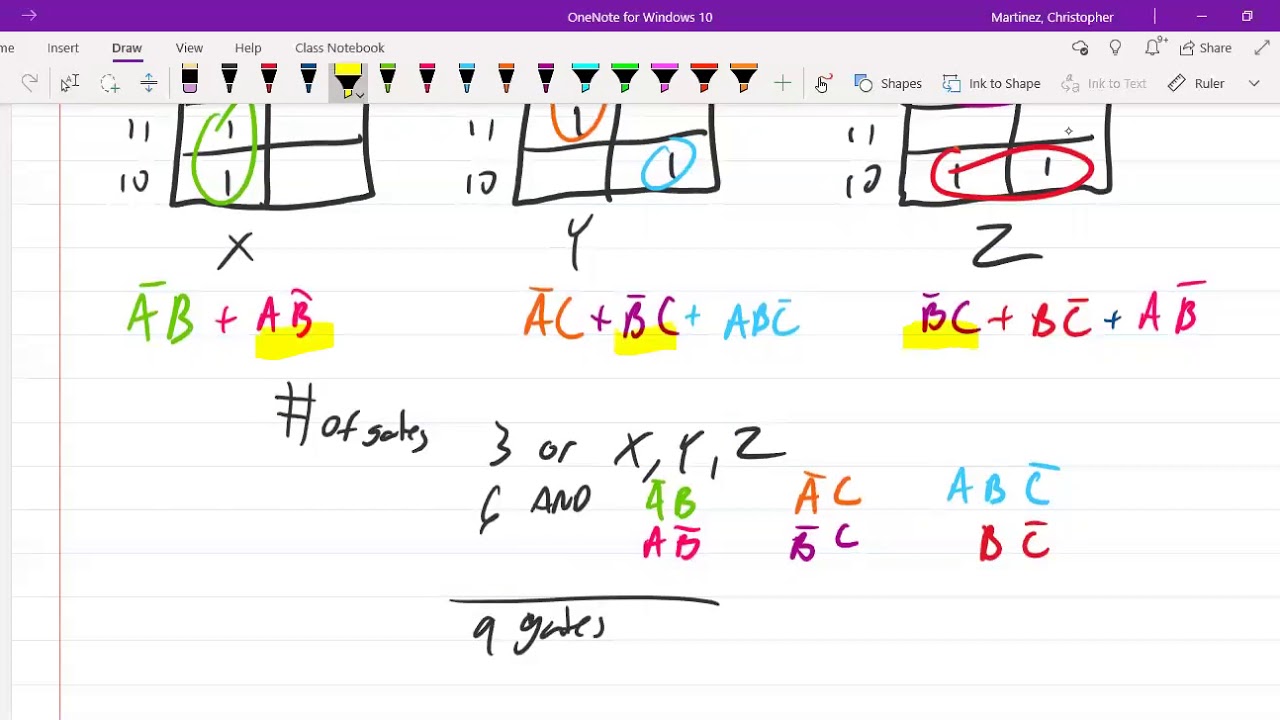 OneNote for Windows 10
Martinez, Christopher
me Insert Draw View Help Class Notebook
9+ Share
Shapes Ink to Shape Ink to Text Ruler
11 1 11 1 11
10 1 10 1 10 1 1
X Y Z
A̅B + AB̅ A̅C + B̅C + ABC̅ B̅C + BC̅ + AB̅
# of gates
3 or X, Y, Z
6 AND A̅B A̅C ABC̅
AB̅ B̅C BC̅
9 gates